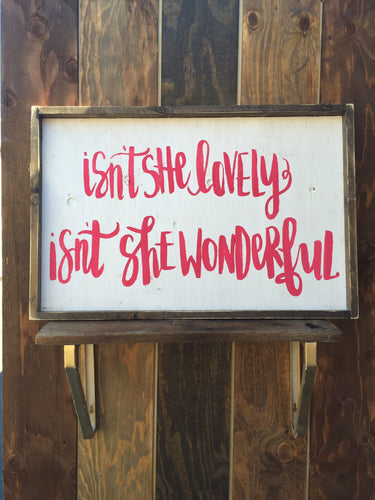 isn't she lovely
isn't she wonderful